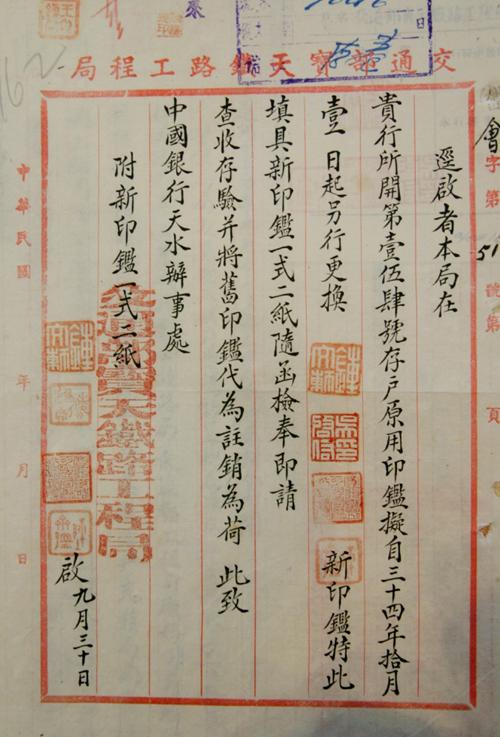 交通部寶天鐵路工程局
會字第51號第 頁
逕啟者本局在
貴行所開第壹伍肆號存戶原用印鑑擬自三十四年拾月
壹日起另行更換 新印鑑特此
填具新印鑑一式二紙隨函檢奉即請
查收存驗并將舊印鑑代為註銷為荷 此致
中國銀行天水辦事處
附新印鑑一式二紙
交通部寶天鐵路工程局
啟九月三十日
中華民國 年 月 日